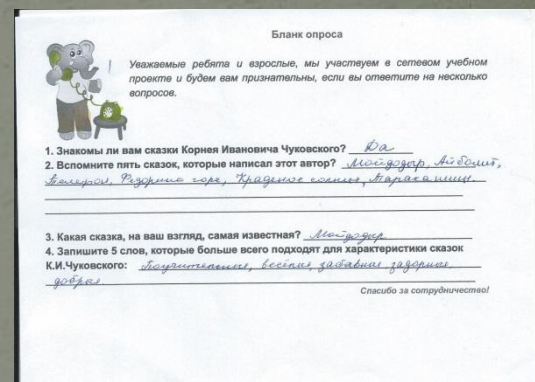 Бланк опроса
Уважаемые ребята и взрослые, мы участвуем в сетевом учебном
проекте и будем вам признательны, если вы ответите на несколько
вопросов.
1. Знакомы ли вам сказки Корнея Ивановича Чуковского? Да
2. Вспомните пять сказок, которые написал этот автор? Мойдодыр, Айболит,
Телефон, Федорино горе, Краденое солнце, Тараканище.
3. Какая сказка, на ваш взгляд, самая известная? Мойдодыр
4. Запишите 5 слов, которые больше всего подходят для характеристики сказок
К.И.Чуковского: Поучительные, весёлые, забавные задорные,
добрые
Спасибо за сотрудничество!